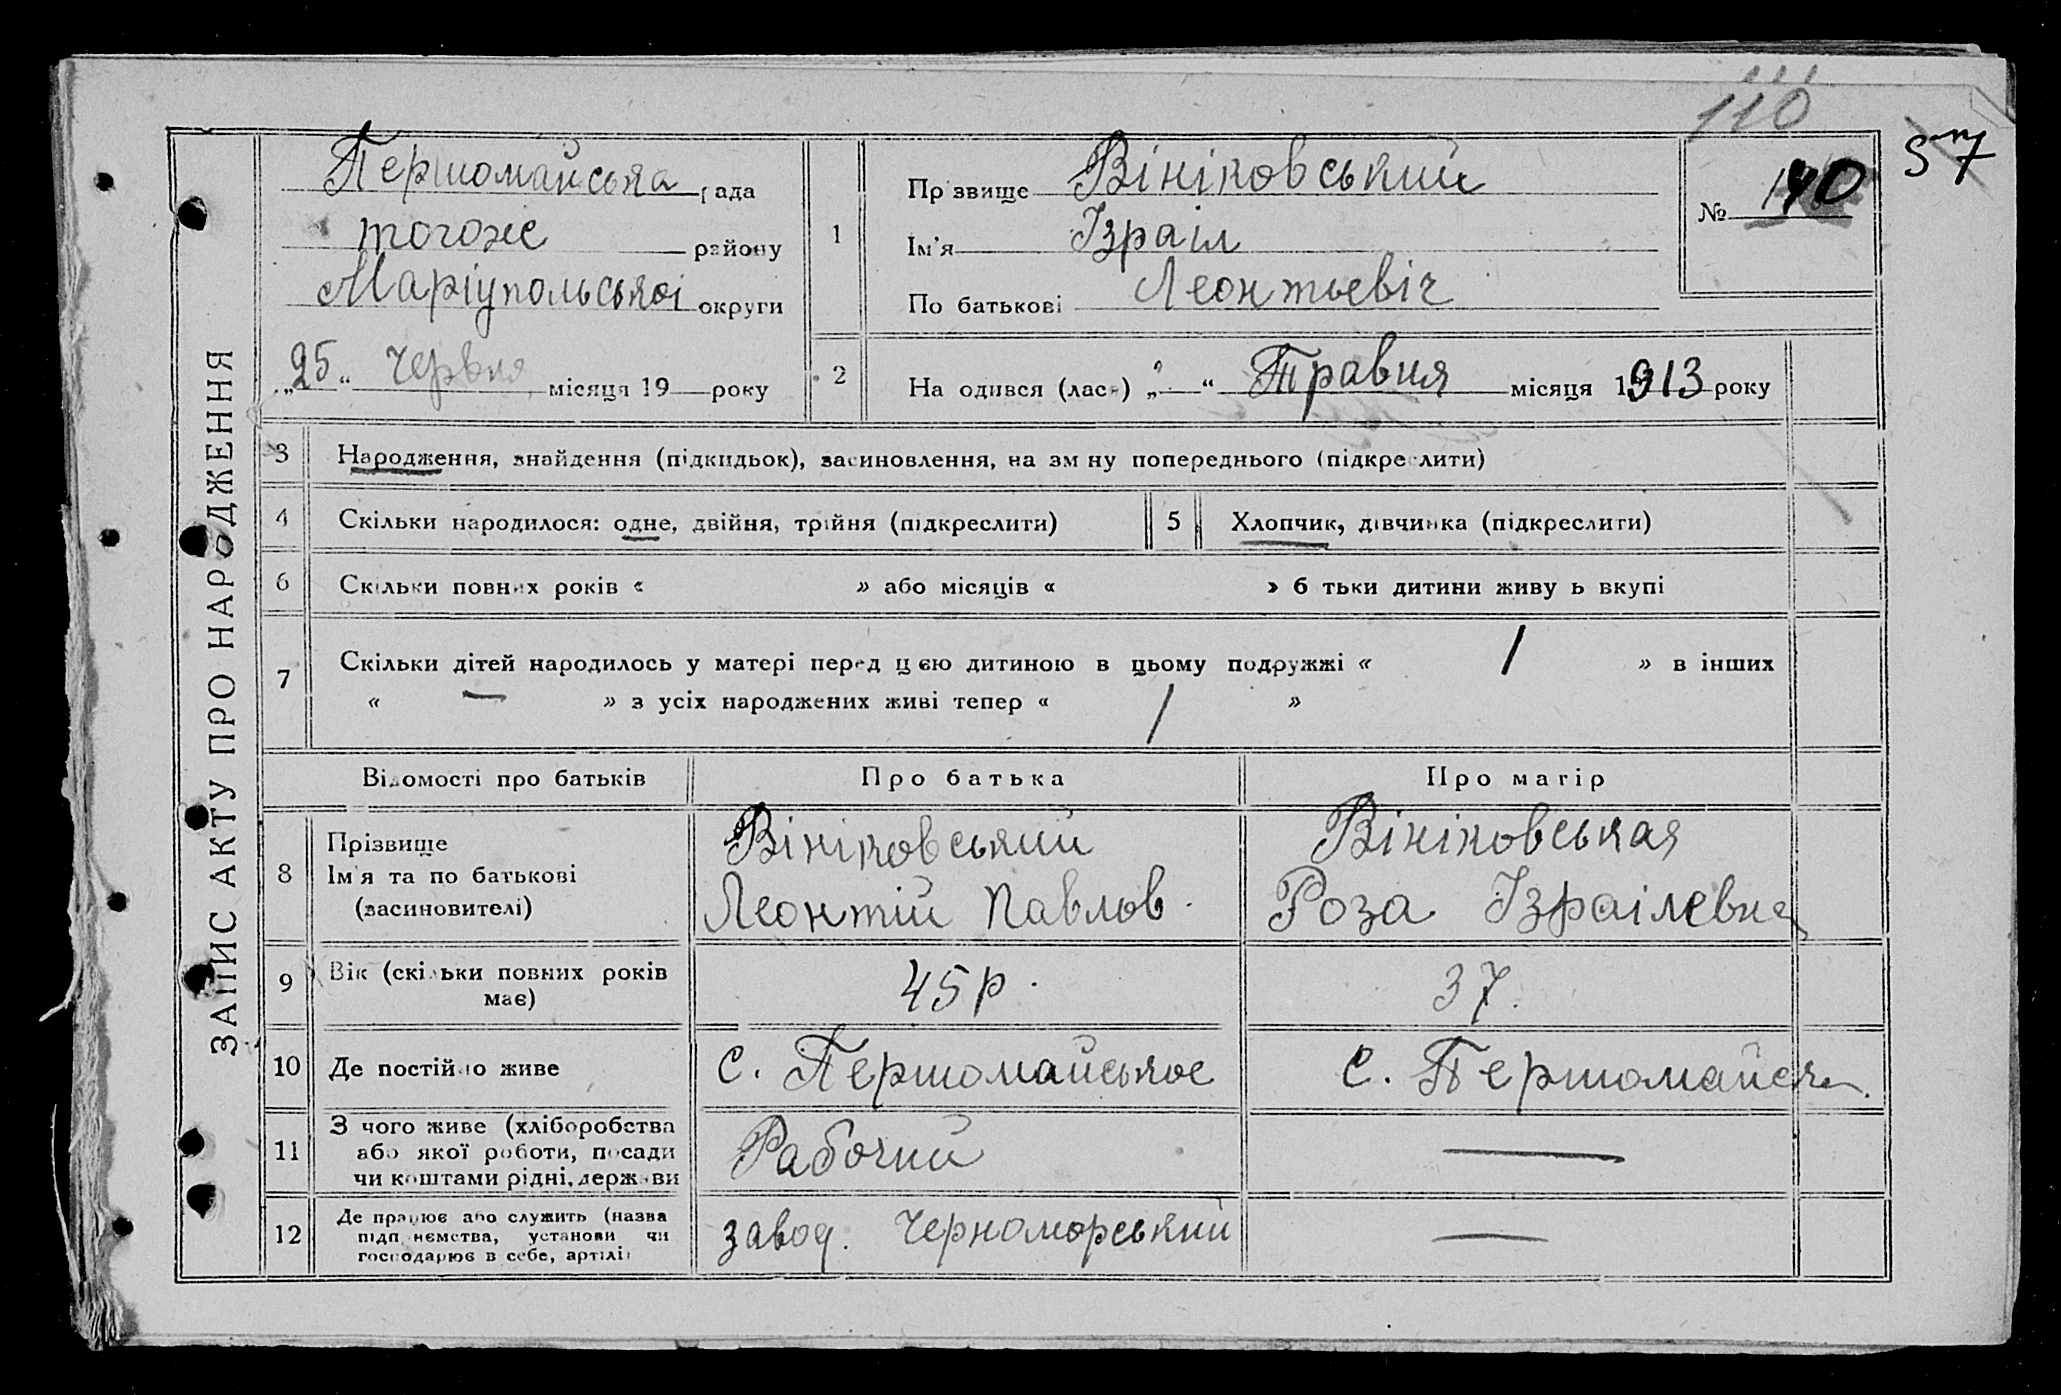 110
Першомайська рада
тогоже району
Маріупольської округи
„25“ Червня місяця 19 року
ЗАПИС АКТУ ПРО НАРОДЖЕННЯ
1
Прізвище Вініковський
Ім'я Ізраіл
По батькові Леонтьевіч
№ 140
57
2 На одився (лася) „ “ Травня місяця 1913 року
3 Народження, знайдення (підкидьок), засиновлення, на зм ну попереднього (підкреслити)
4 Скільки народилося: одне, двійня, трійня (підкреслити) 5 Хлопчик, дівчинка (підкреслити)
6 Скільки повних років « » або місяців « » б тьки дитини живу ь вкупі
7 Скільки дітей народилось у матері перед цією дитиною в цьому подружжі « 1 » в інших
« — » з усіх народжених живі тепер « 1 »
Відомості про батьків Про батька Про матір
8 Прізвище
Ім'я та по батькові
(засиновителі)
Вініковський
Леонтій Павлов.
Вініковськая
Роза Ізраілевна
9 Вік (скільки повних років
має)
45 р.
37.
10 Де постійно живе с. Першомайськое с. Першомайск
11 З чого живе (хліборобства
або якої роботи, посади
чи коштами рідні, держави
Рабочий
—
12 Де працює або служить (назва
підп иємства, установи чи
господарює в себе, артілі
завод. Черноморський
—